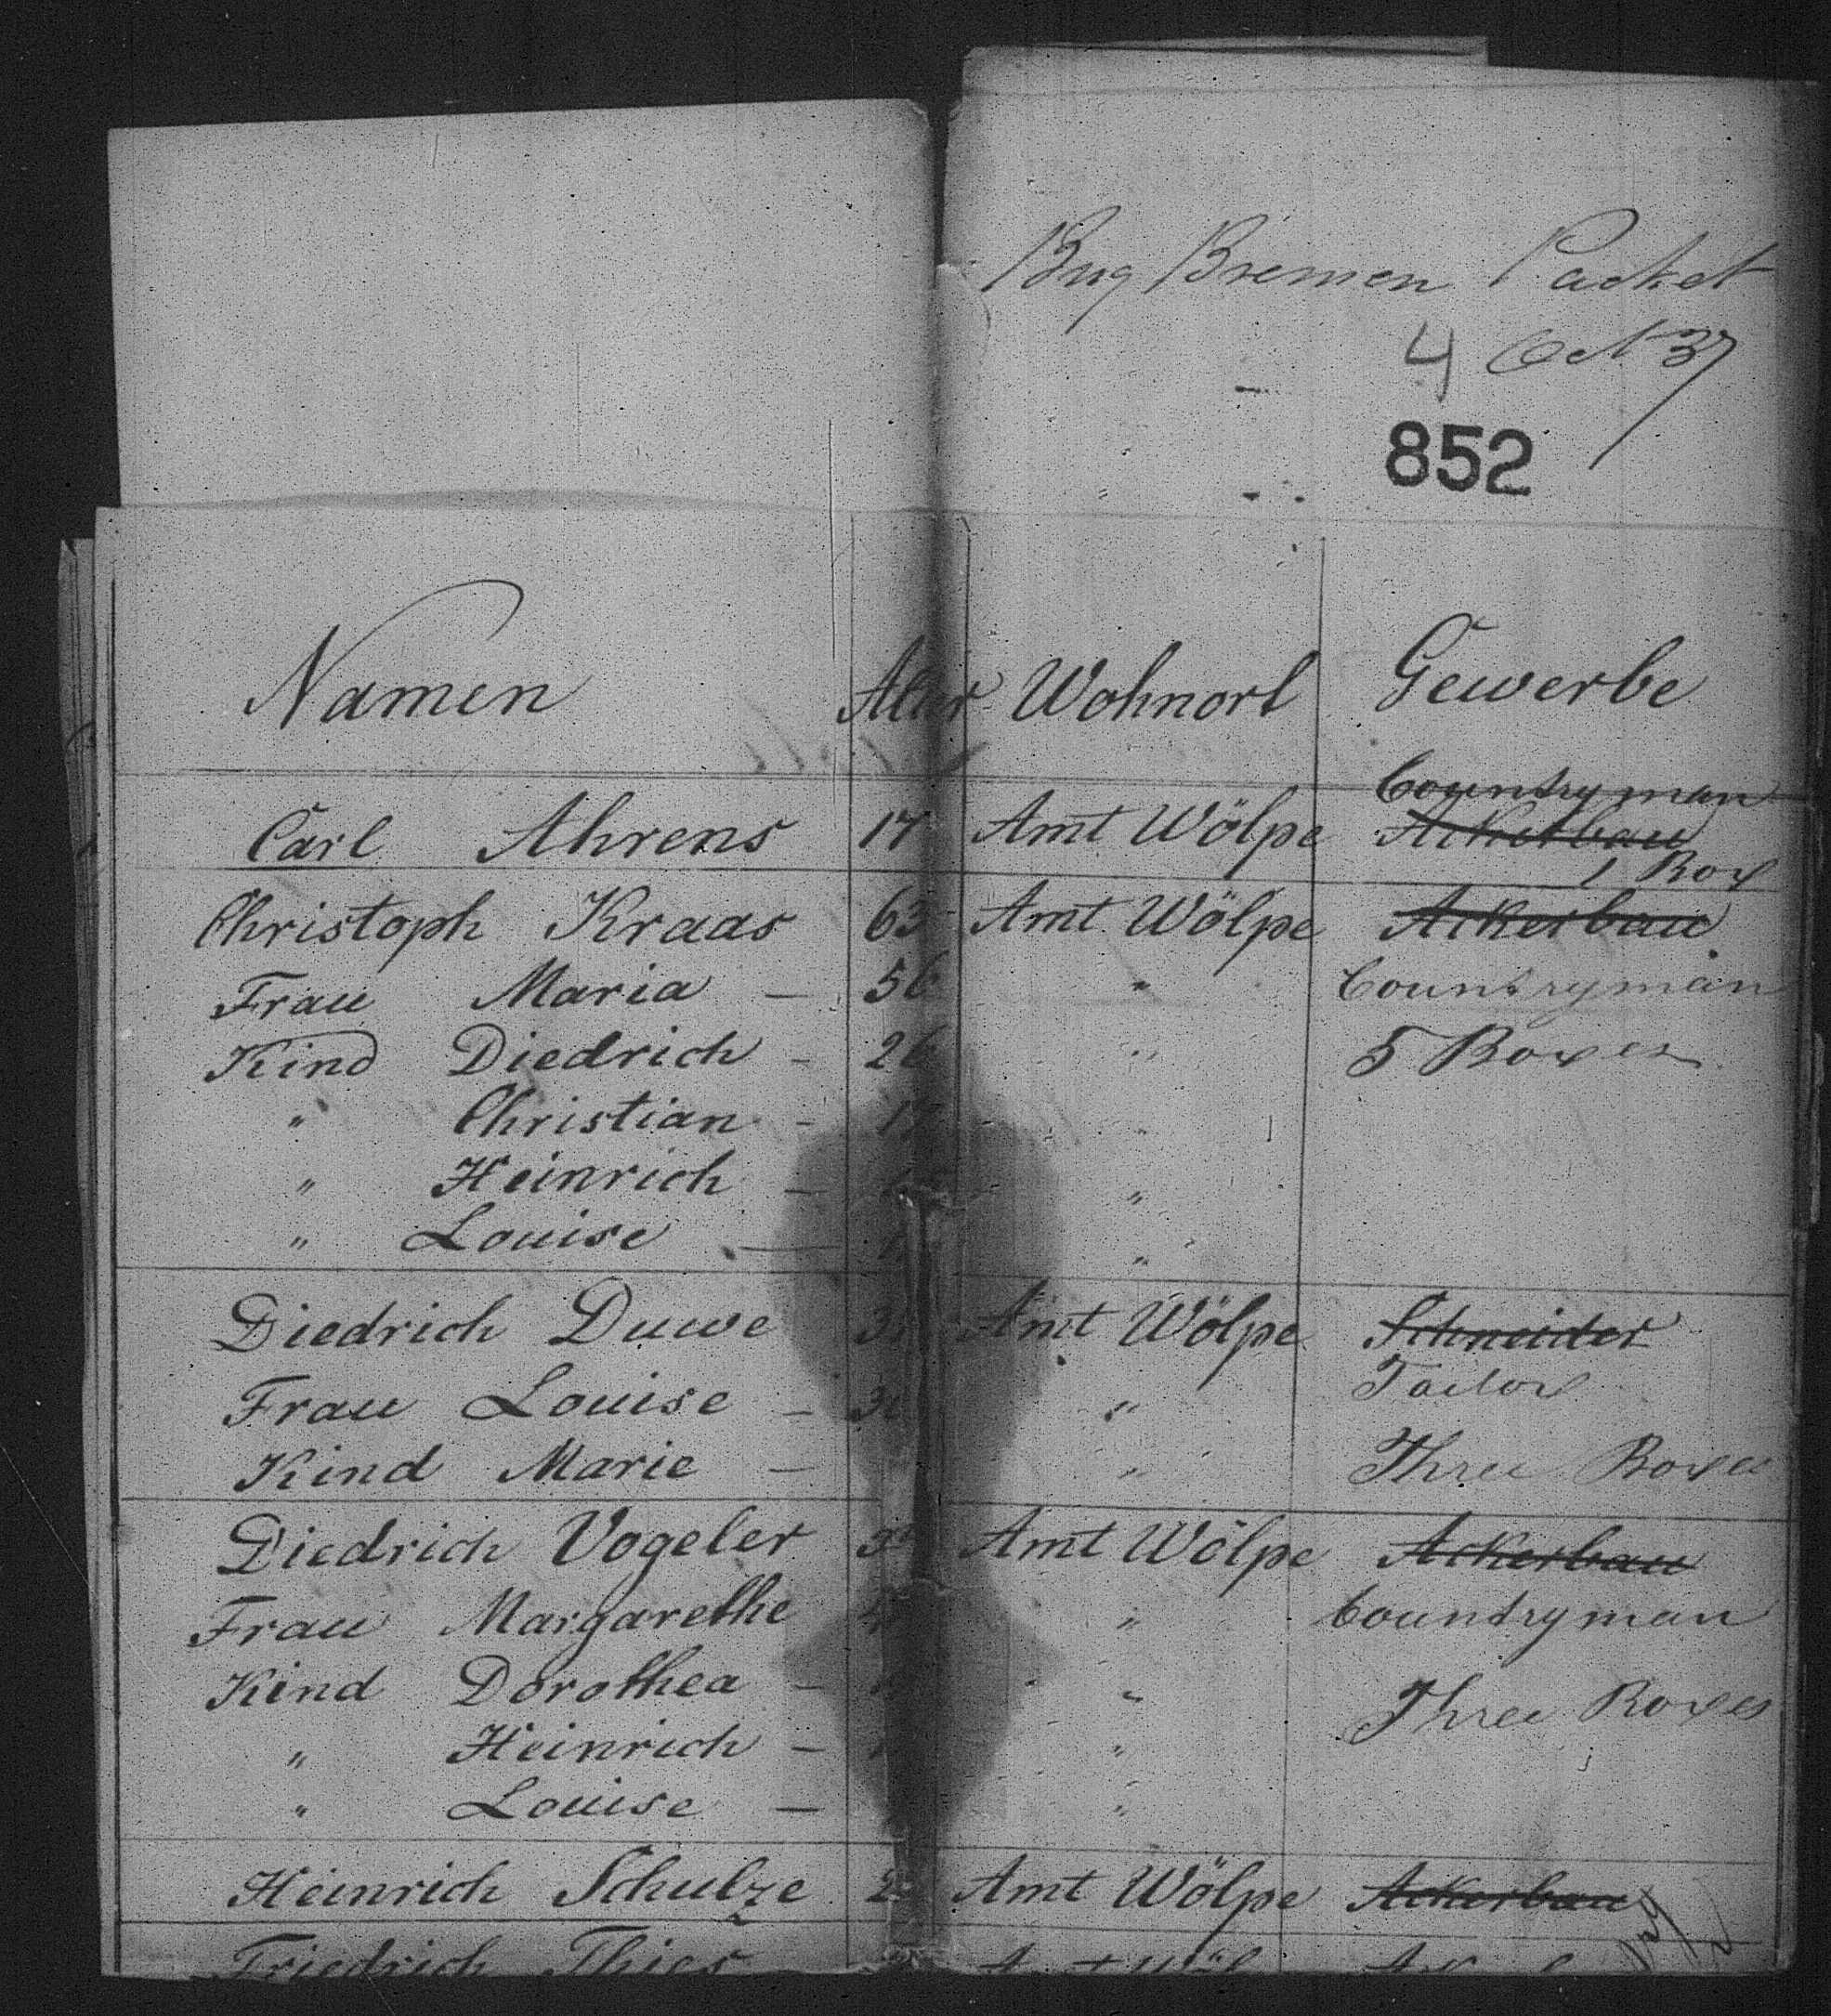 Brig Bremen Packet
4 Oct 37
852
Namen Alter Wohnort Gewerbe
Countryman
Carl Ahrens 17 Amt Wölpe Ackerbau
1 Box
Christoph Kraas 63 Amt Wölpe Ackerbau
Frau Maria — 56 " Countryman
Kind Diedrich - 26 " 5 Boxes
" Christian - 17 "
" Heinrich — "
" Louise — "
Diedrich Duwe Amt Wölpe Schneider
Tailor
Frau Louise — "
Kind Marie — " Three Boxes
Diedrich Vogeler Amt Wölpe Ackerbau
Frau Margarethe " Countryman
Kind Dorothea - " Three Boxes
" Heinrich — "
" Louise — "
Heinrich Schulze Amt Wölpe Ackerbau
Friedrich Thies Amt